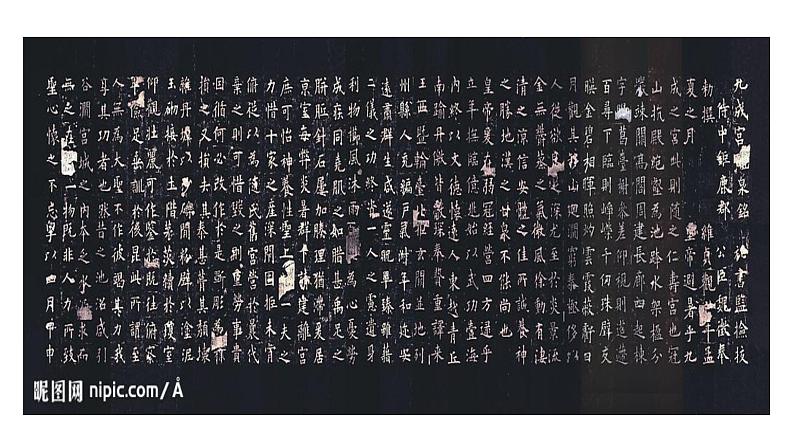 九成宮泉銘祕書監撿挍
侍中鉅鹿郡公臣魏徵奉
勑撰維貞觀年孟
夏之月皇帝避暑乎九
成之宮此則隨之仁壽宮也冠
山抗殿絶壑為池跨水架楹分
巖竦闕髙閣周建長廊四起棟
宇膠葛臺榭參差仰視則迢遰
百尋下臨則崢嶸千仞珠璧交
暎金碧相暉照灼雲霞蔽虧日
月觀其移山迴澗窮泰極侈以
人從欲良足深尤至於炎景流
金無欝蒸之氣微風徐動有淒
清之涼信安體之佳所誠養神
之勝地漢之甘泉不能尚也
皇帝爰在弱冠經營四方逮乎
立年撫臨億兆始以武功壹海
内終以文德懷遠人東越青丘
南踰丹儌皆獻琛奉贄重譯来
王西暨輪臺北拒玄闕並地列
州縣人充編戸氣淑年和迩安
遠肅群生咸遂靈貺畢臻雖藉
二儀之功終資一人之慮遺身
利物櫛風沐雨百姓為心憂勞
成疾同堯肌之如腊甚禹足之
胼胝針石屢加腠理猶滯爰居
京室每弊炎暑群下請建離宮
庶可怡神養性聖上一夫之
力惜十家之産深閇固拒未肯
俯從以為隨氏舊宮營於曩代
棄之則可惜毀之則重勞事貴
因循何必改作於是斵彫為樸
損之又損去其泰甚葺其頹壞
雜丹墀以沙礫間粉壁以塗泥
玉砌接於土階茅茨續於瓊室
仰觀壯麗可作鑒於既往俯察
卑儉足垂訓於後昆此所謂至
人無為大聖不作彼竭其力我
享其功者也然昔之池沼咸引
谷澗宮城之内本乏水源求而
無之在一物既非人力所致
聖心懷之不忘粤以四月甲申
昵图网 nipic.com/Å